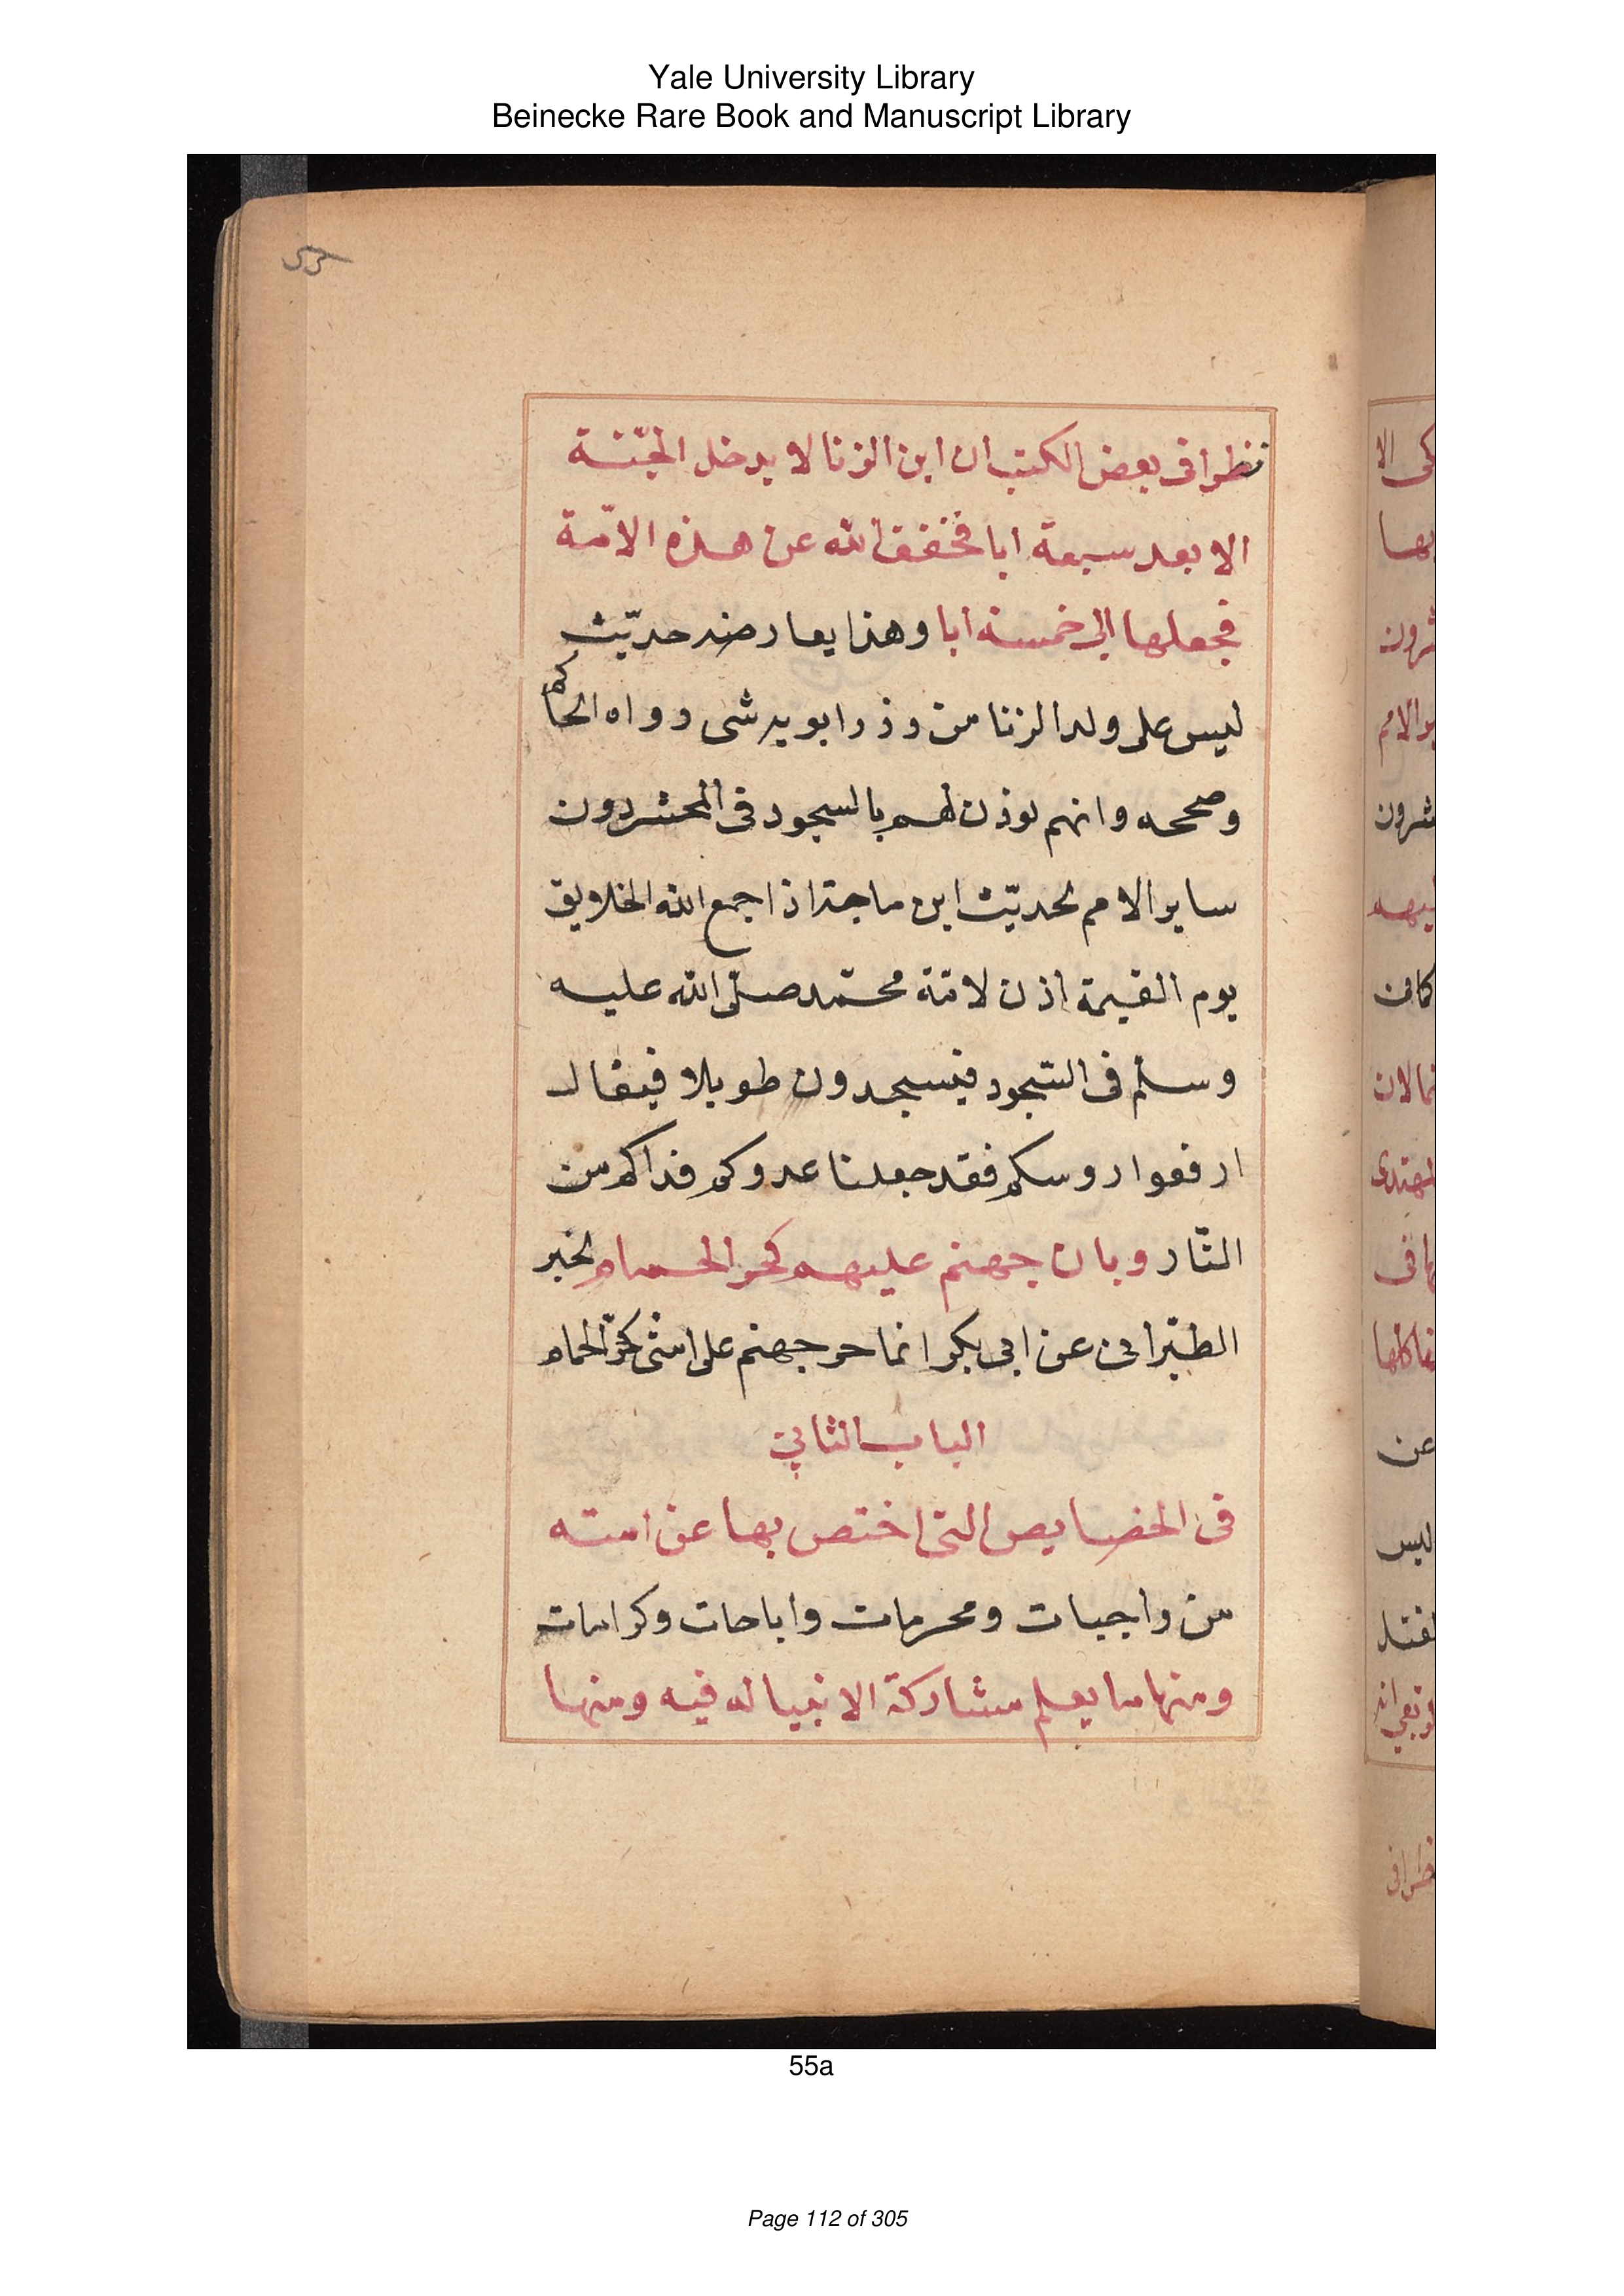 Yale University Library
Beinecke Rare Book and Manuscript Library
55
نظرا فى بعض الكتب ان ابن الزنا لا يدخل الجنّة
الا بعد سبعة ابا فخفف الله عن هذه الامّة
فجعلها الى خمسة ابا وهذا يعارضه حديث
ليس على ولد الزنا من وذر ابويه شى ورواه الحاكم
وصححه وانهم يوذن لهم بالسجود فى المحشر دون
ساير الامم لحديث ابن ماجة اذا جمع الله الخلايق
يوم القيمة اذن لامّة محمّد صلّى الله عليه
وسلم فى السّجود فيسجدون طويلا فيقال
ارفعوا روسكم فقد جعلنا عدوكم فداكم من
النّار وبان جهنم عليهم كحر الحمام لخبر
الطبّرانى عن ابى بكر انما حر جهنم على امتى كحرّ الحمام
الباب الثانى
فى الخصايص التى اختص بها عن امته
من واجبات ومحرمات واباحات وكرامات
ومنها ما يعلم مشاركة الانبيا له فيه ومنها
55a
Page 112 of 305